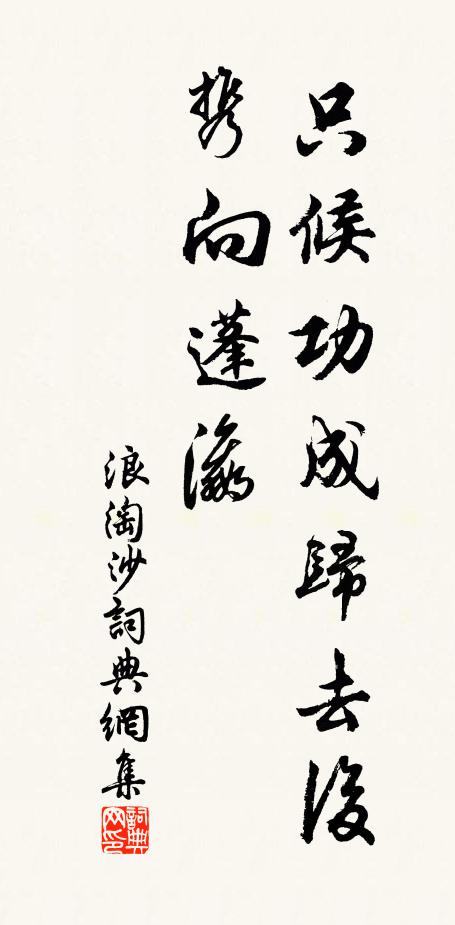 只候功成歸去後
携向蓬瀛
浪淘沙詞典網集
詞典网印